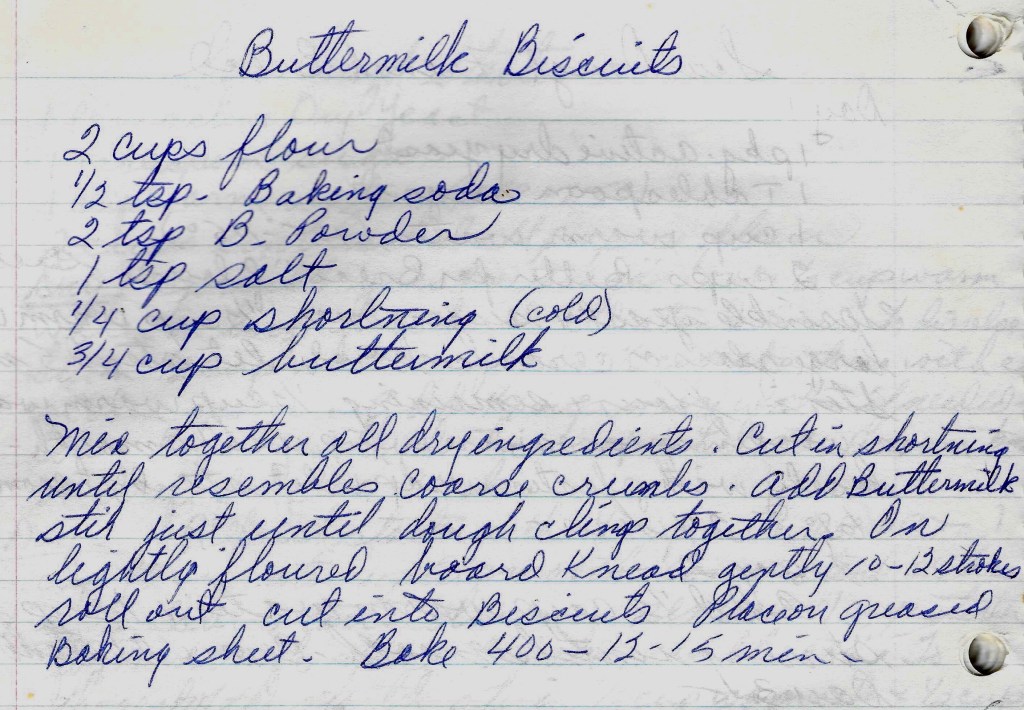 Buttermilk Biscuits
2 cups flour
1/2 tsp. Baking soda
2 tsp B. Powder
1 tsp salt
1/4 cup shortning (cold)
3/4 cup buttermilk
Mix together all dry ingredients. Cut in shortning
until resembles coarse crumbs. Add Buttermilk
stir just until dough clings together. On
lightly floured board Knead gently 10-12 strokes
roll out cut into Biscuits Place on greased
Baking sheet. Bake 400 - 12-15 min.